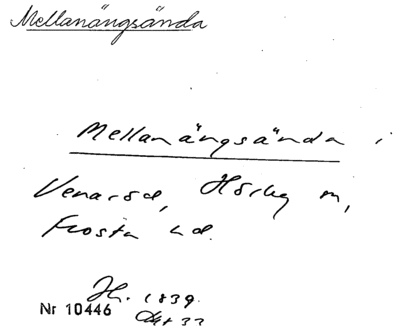 Mellanängsända
Mellanängsända i
Venaröd, Hörby m,
Frosta hd.
Jh. 1839.
Nr 10446
Akt 33